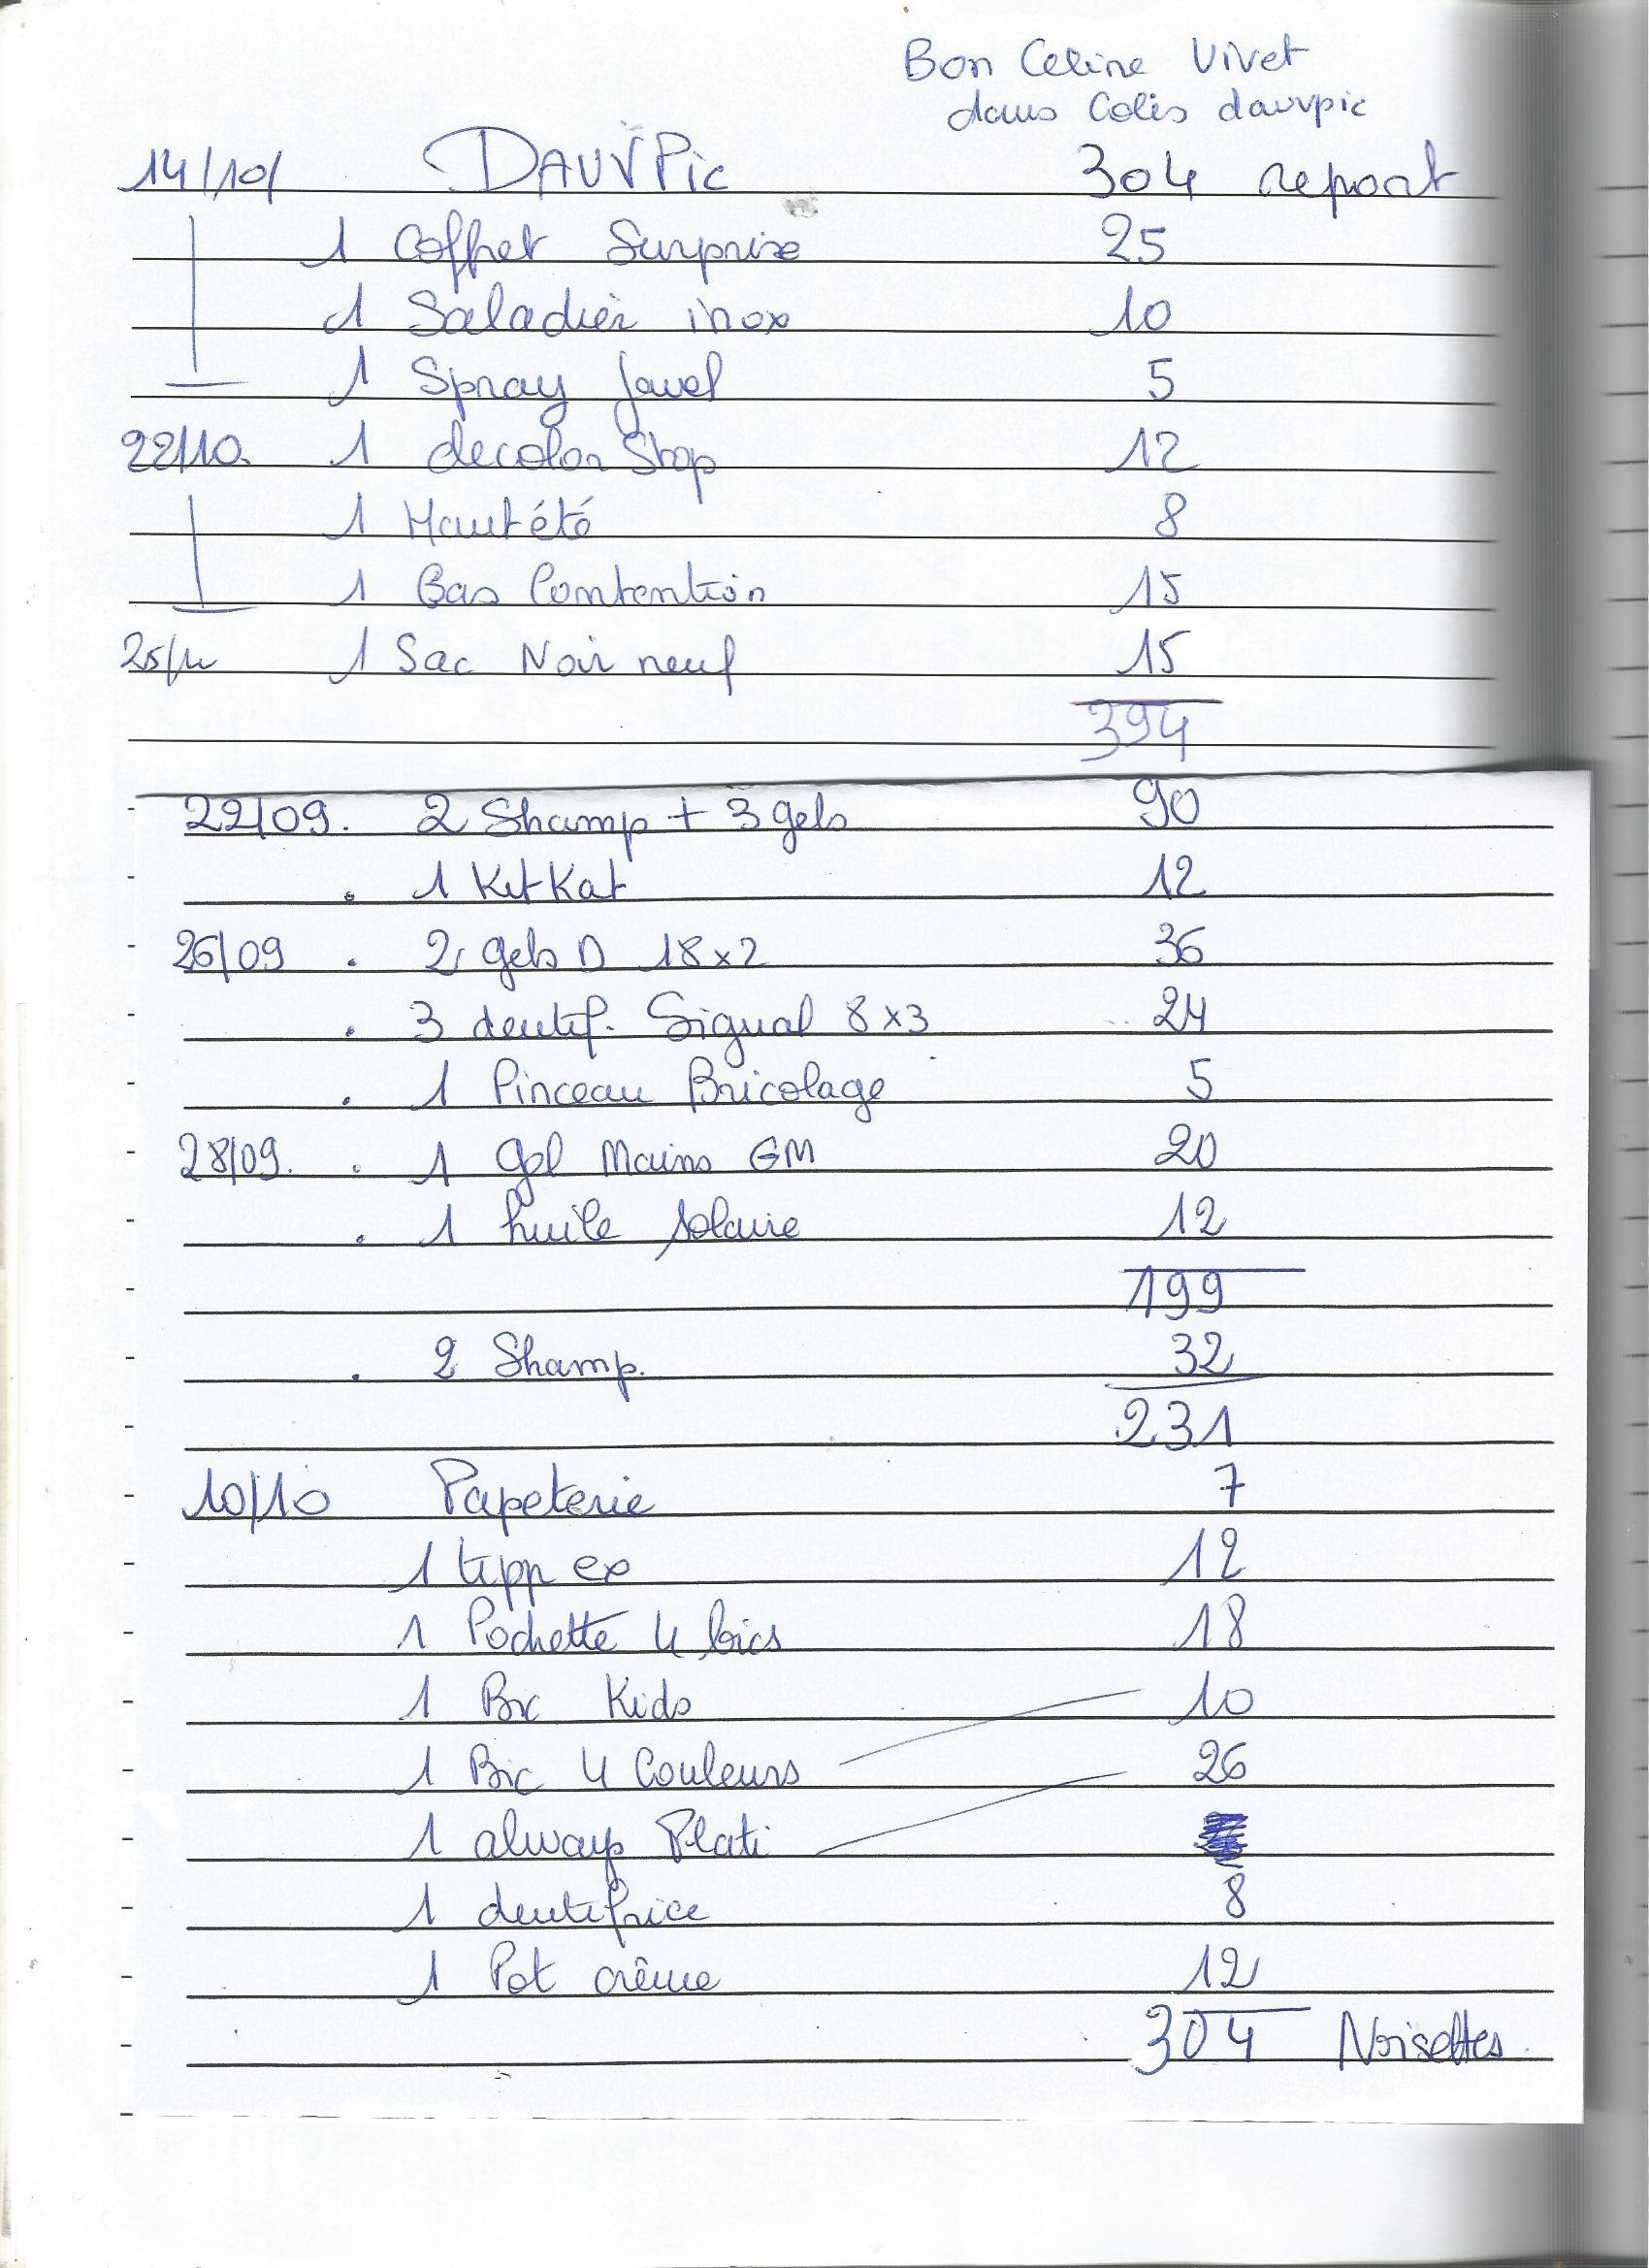 Bon Celine Vivet
dans Colis dauvpic
14/10/ DAUVPic 304 report
1 Coffret Surprise 25
1 Saladier inox 10
1 Spray Javel 5
22/10. 1 decolor Stop 12
1 Haut été 8
1 Bas Contention 15
25/10 1 Sac Noir neuf 15
394
22/09. 2 Shamp + 3 gels 90
. 1 KitKat 12
26/09 . 2 gels D 18x2 36
. 3 dentif. Signal 8x3 24
. 1 Pinceau Bricolage 5
28/09. . 1 gel Mains GM 20
. 1 huile solaire 12
199
. 2 Shamp. 32
231
10/10 Papeterie 7
1 tipp ex 12
1 Pochette 4 bics 18
1 Bic Kids 10
1 Bic 4 Couleurs 26
1 always Plati
1 dentifrice 8
1 Pot crème 12
304 Noisettes.